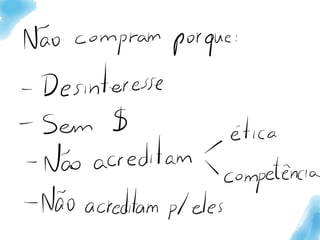 Não compram porque:
- Desinteresse
- Sem $
- Não acreditam
ética
competência
- Não acreditam p/ eles